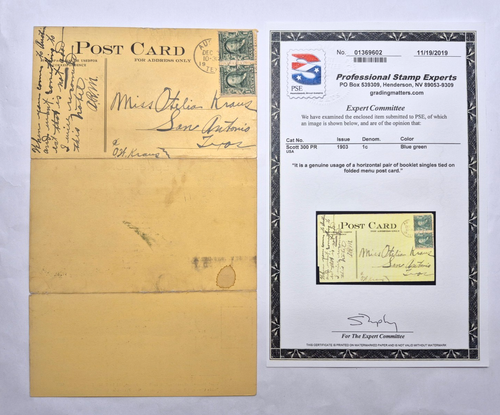 POST CARD
FOR ADDRESS ONLY
AU
DEC
10
19
TE
When you come to
and
this
Miss Otylia Kraus
San Antonio
Texas
No. 01369602
11/19/2019
PSE
PROFESSIONAL STAMP EXPERTS
Professional Stamp Experts
PO Box 539309, Henderson, NV 89053-9309
gradingmatters.com
Expert Committee
We have examined the enclosed item submitted to PSE, of which
an image is shown below, and are of the opinion that:
Cat No.
Issue
Denom.
Color
Scott 300 PR
1903
1c
Blue green
USA
"It is a genuine usage of a horizontal pair of booklet singles tied on
folded menu post card."
POST CARD
FOR ADDRESS ONLY
Miss Otylia Kraus
San Antonio
Texas
For The Expert Committee
THIS CERTIFICATE IS PRINTED ON WATERMARKED PAPER AND IS NOT VALID WITHOUT WATERMARK